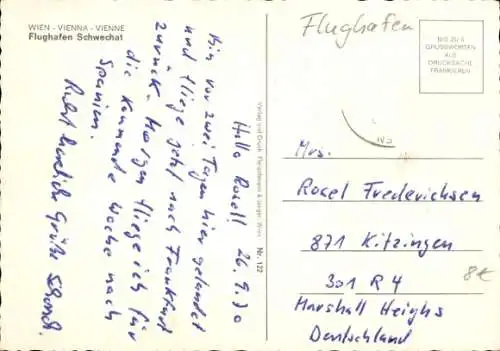 WIEN - VIENNA - VIENNE
Flughafen Schwechat
Hallo Rosel! 26.9.70
Bin vor zwei Tagen hier gelandet
und fliege jetzt nach Frankfurt
zurück. Morgen fliege ich für
die kommende Woche nach
Spanien.
Recht herzliche Grüße
Verlag und Druck
Wien
Nr. 122
Flughafen
BIS ZU 5
GRUSSWORTEN
ALS
DRUCKSACHE
FRANKIEREN
Mrs.
Rosel Frederichsen
871 Kitzingen
301 R 4
8€
Marshall Heighs
Deutschland